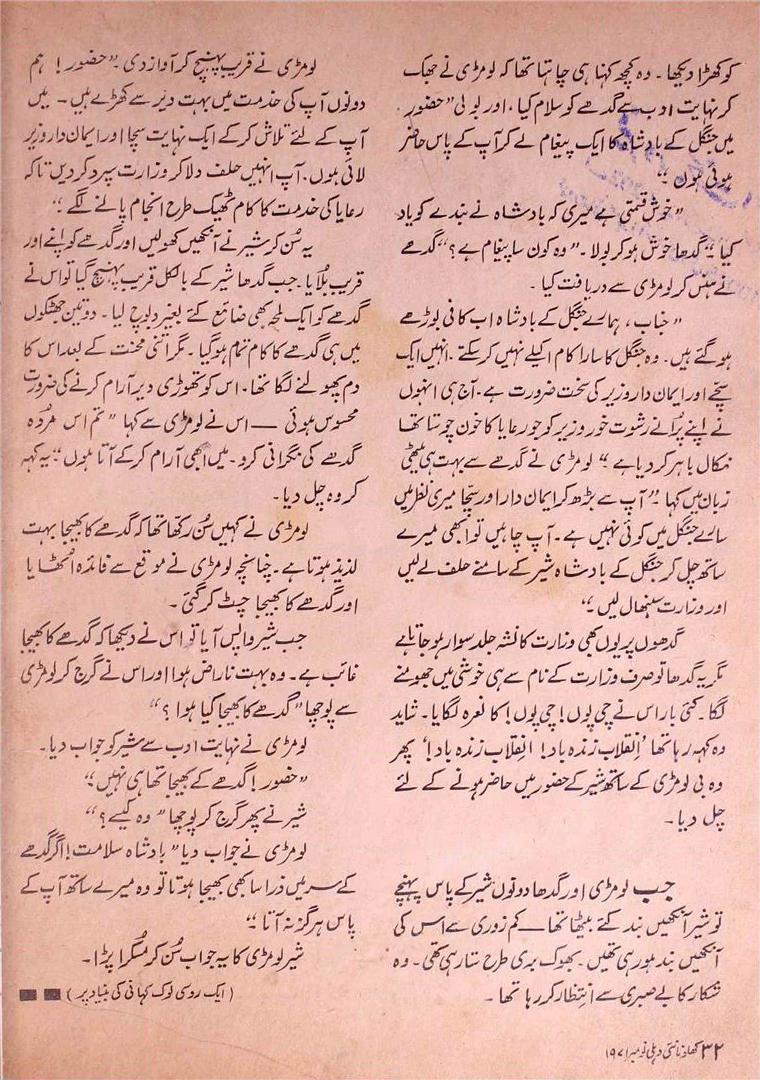 کو کھڑا دیکھا۔ وہ کچھ کہنا ہی چاہتا تھا کہ لومڑی نے جھک
کر نہایت ادب سے گدھے کو سلام کیا، اور بولی "حضور،
میں جنگل کے بادشاہ کا ایک پیغام لے کر آپ کے پاس حاضر
ہوئی ہوں۔"
"خوش قسمتی ہے میری کہ بادشاہ نے بندے کو یاد
کیا" گدھا خوش ہو کر بولا۔ "وہ کون سا پیغام ہے؟" گدھے
نے ہنس کر لومڑی سے دریافت کیا۔
"جناب، ہمارے جنگل کے بادشاہ اب کافی بوڑھے
ہو گئے ہیں۔ وہ جنگل کا سارا کام اکیلے نہیں کر سکتے۔ انہیں ایک
سچے اور ایمان دار وزیر کی سخت ضرورت ہے۔ آج ہی انہوں
نے اپنے پرانے رشوت خور وزیر کو جو رعایا کا خون چوستا تھا
نکال باہر کر دیا ہے۔" لومڑی نے گدھے سے بہت ہی میٹھی
زبان میں کہا۔ "آپ سے بڑھ کر ایمان دار اور سچا میری نظر میں
سارے جنگل میں کوئی نہیں ہے۔ آپ چاہیں تو ابھی میرے
ساتھ چل کر جنگل کے بادشاہ شیر کے سامنے حلف لے لیں
اور وزارت سنبھال لیں۔"
گدھوں پر یوں بھی وزارت کا نشہ جلد سوار ہو جاتا ہے
مگر یہ گدھا تو صرف وزارت کے نام سے ہی خوشی میں جھومنے
لگا۔ کئی بار اس نے چی پوں! چی پوں! کا نعرہ لگایا۔ شاید
وہ کہہ رہا تھا 'اِنقلاب زندہ باد! اِنقلاب زندہ باد!' پھر
وہ بی لومڑی کے ساتھ شیر کے حضور میں حاضر ہونے کے لئے
چل دیا۔
جب لومڑی اور گدھا دونوں شیر کے پاس پہنچے
تو شیر آنکھیں بند کئے بیٹھا تھا — کم زوری سے اس کی
آنکھیں بند ہو رہی تھیں۔ بھوک بری طرح ستا رہی تھی۔ وہ
شکار کا بے صبری سے انتظار کر رہا تھا۔
لومڑی نے قریب پہنچ کر آواز دی۔ "حضور! ہم
دونوں آپ کی خدمت میں بہت دیر سے کھڑے ہیں۔ میں
آپ کے لئے تلاش کر کے ایک نہایت سچا اور ایمان دار وزیر
لائی ہوں۔ آپ انہیں حلف دلا کر وزارت سپرد کر دیں تاکہ
رعایا کی خدمت کا کام ٹھیک طرح انجام پانے لگے۔"
یہ سُن کر شیر نے آنکھیں کھولیں اور گدھے کو اپنے اور
قریب بُلایا۔ جب گدھا شیر کے بالکل قریب پہنچ گیا تو اس نے
گدھے کو ایک لمحہ بھی ضائع کئے بغیر دبوچ لیا۔ دو تین جھٹکوں
میں ہی گدھے کا کام تمام ہو گیا۔ مگر اتنی محنت کے بعد اس کا
دم پھولنے لگا تھا۔ اس کو تھوڑی دیر آرام کرنے کی ضرورت
محسوس ہوئی — اس نے لومڑی سے کہا "تم اس مُردہ
گدھے کی نگرانی کرو۔ میں ابھی آرام کر کے آتا ہوں۔" یہ کہہ
کر وہ چل دیا۔
لومڑی نے کہیں سُن رکھّا تھا کہ گدھے کا بھیجا بہت
لذیذ ہوتا ہے۔ چنانچہ لومڑی نے موقع سے فائدہ اُٹھایا
اور گدھے کا بھیجا چٹ کر گئی۔
جب شیر واپس آیا تو اس نے دیکھا کہ گدھے کا بھیجا
غائب ہے۔ وہ بہت ناراض ہوا اور اس نے گرج کر لومڑی
سے پوچھا "گدھے کا بھیجا کیا ہوا؟"
لومڑی نے نہایت ادب سے شیر کو جواب دیا۔
"حضور! گدھے کے بھیجا تھا ہی نہیں۔"
شیر نے پھر گرج کر پوچھا "وہ کیسے؟"
لومڑی نے جواب دیا "بادشاہ سلامت! اگر گدھے
کے سر میں ذرا سا بھی بھیجا ہوتا تو وہ میرے ساتھ آپ کے
پاس ہرگز نہ آتا۔"
شیر لومڑی کا یہ جواب سُن کر مُسکرا پڑا۔
(ایک روسی لوک کہانی کی بنیاد پر)
۳۲ کھلونا نئی دہلی نومبر ۱۹۷۱